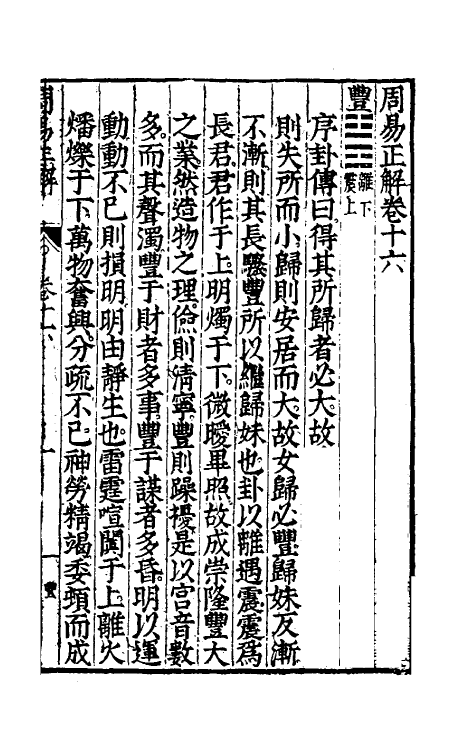 周易正解卷十六
豐䷶離下震上
序卦傳曰得其所歸者必大故
則失所而小歸則安居而大故女歸必豐歸妹反漸
不漸則其長驟豐所以繼歸妹也卦以離遇震震爲
長君君作于上明燭于下微曖畢照故成崇隆豐大
之業然造物之理儉則清寧豐則躁擾是以宮音數
多而其聲濁豐于財者多事豐于謀者多昏明以運
動動不已則損明明由靜生也雷霆喧闐于上離火
燔爍于下萬物奮興分疏不已神勞精竭委頓而成
周易正解
卷十六
一
豐